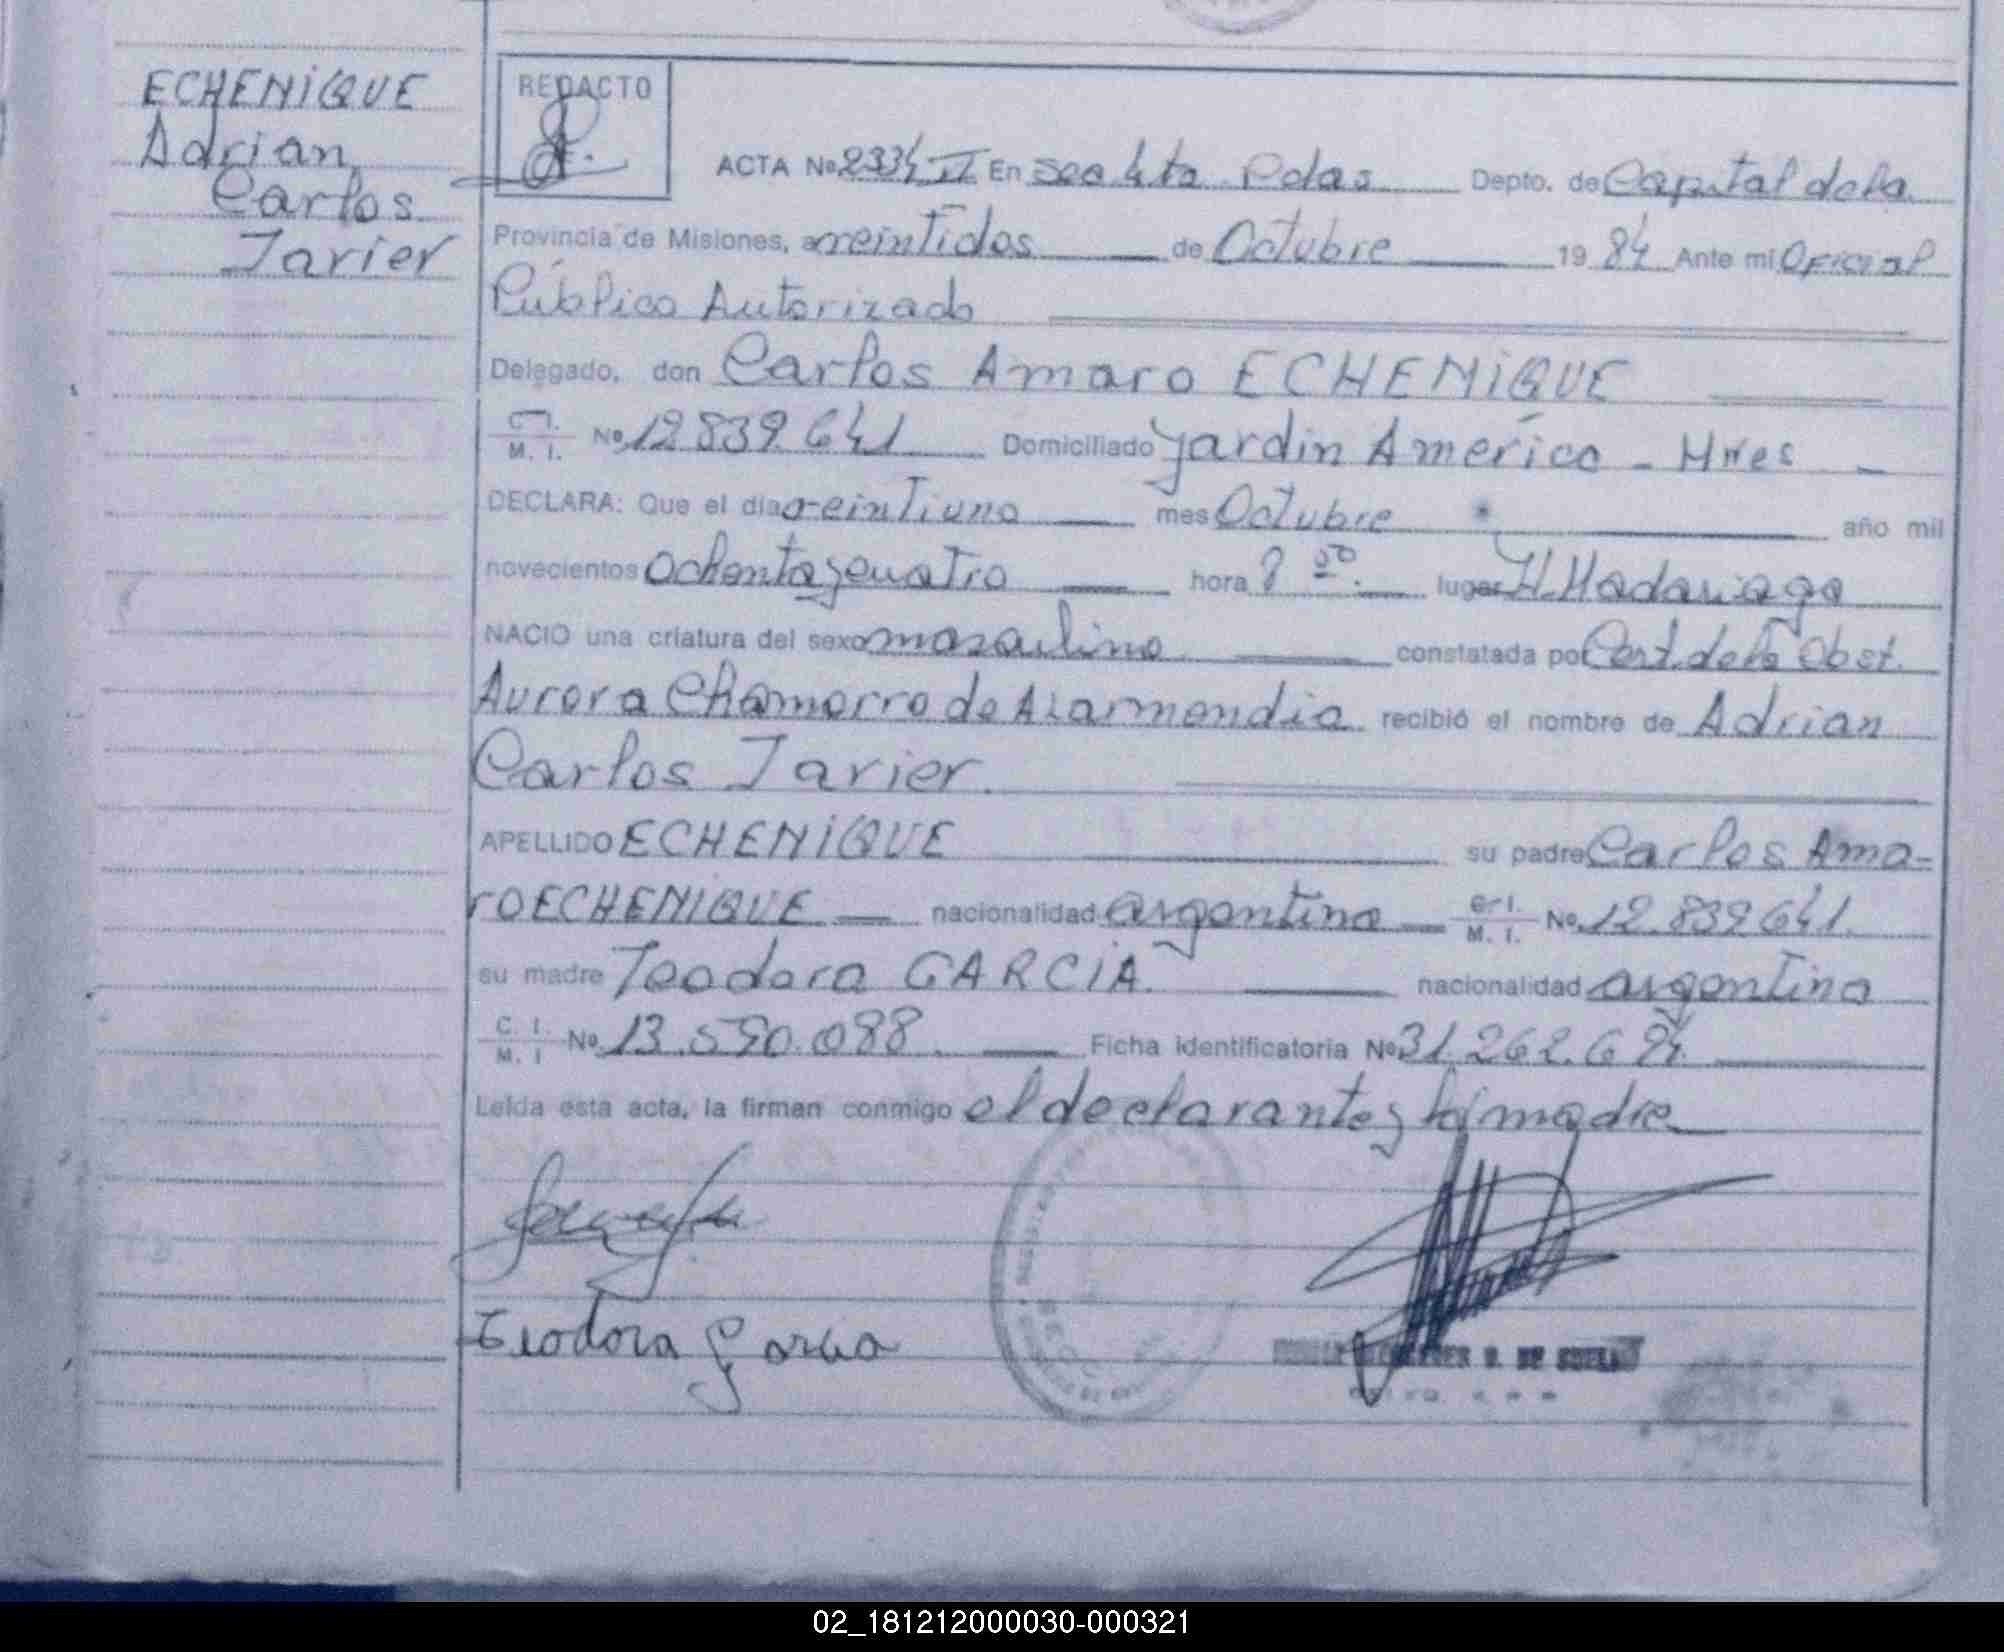 ECHENIQUE
Adrian
Carlos
Javier
REDACTO
ACTA No 2334 II En Sec 4ta Pdas Depto. de Capital de la
Provincia de Misiones, a veintidos de Octubre 1984 Ante mi Oficial
Público Autorizado
Delegado, don Carlos Amaro ECHENIQUE
C. I.
M. I. No 12.839.641 Domiciliado Jardin América - Mnes -
DECLARA: Que el dia veintiuno mes Octubre año mil
novecientos ochenta y cuatro hora 8 00. lugar H. Madariaga
NACIO una criatura del sexo masculino constatada por Cert. de la Obst.
Aurora Chamorro de Azarmendia recibió el nombre de Adrian
Carlos Javier.
APELLIDO ECHENIQUE su padre Carlos Ama-
ro ECHENIQUE nacionalidad argentina C. I.
M. I. No 12.839.641.
su madre Teodora GARCIA nacionalidad argentina
C. I.
M. I No 13.590.088 Ficha identificatoria No 31.262.684.
Leida esta acta, la firman conmigo el declarante y la madre
Teodora Garcia
DE
02_181212000030-000321